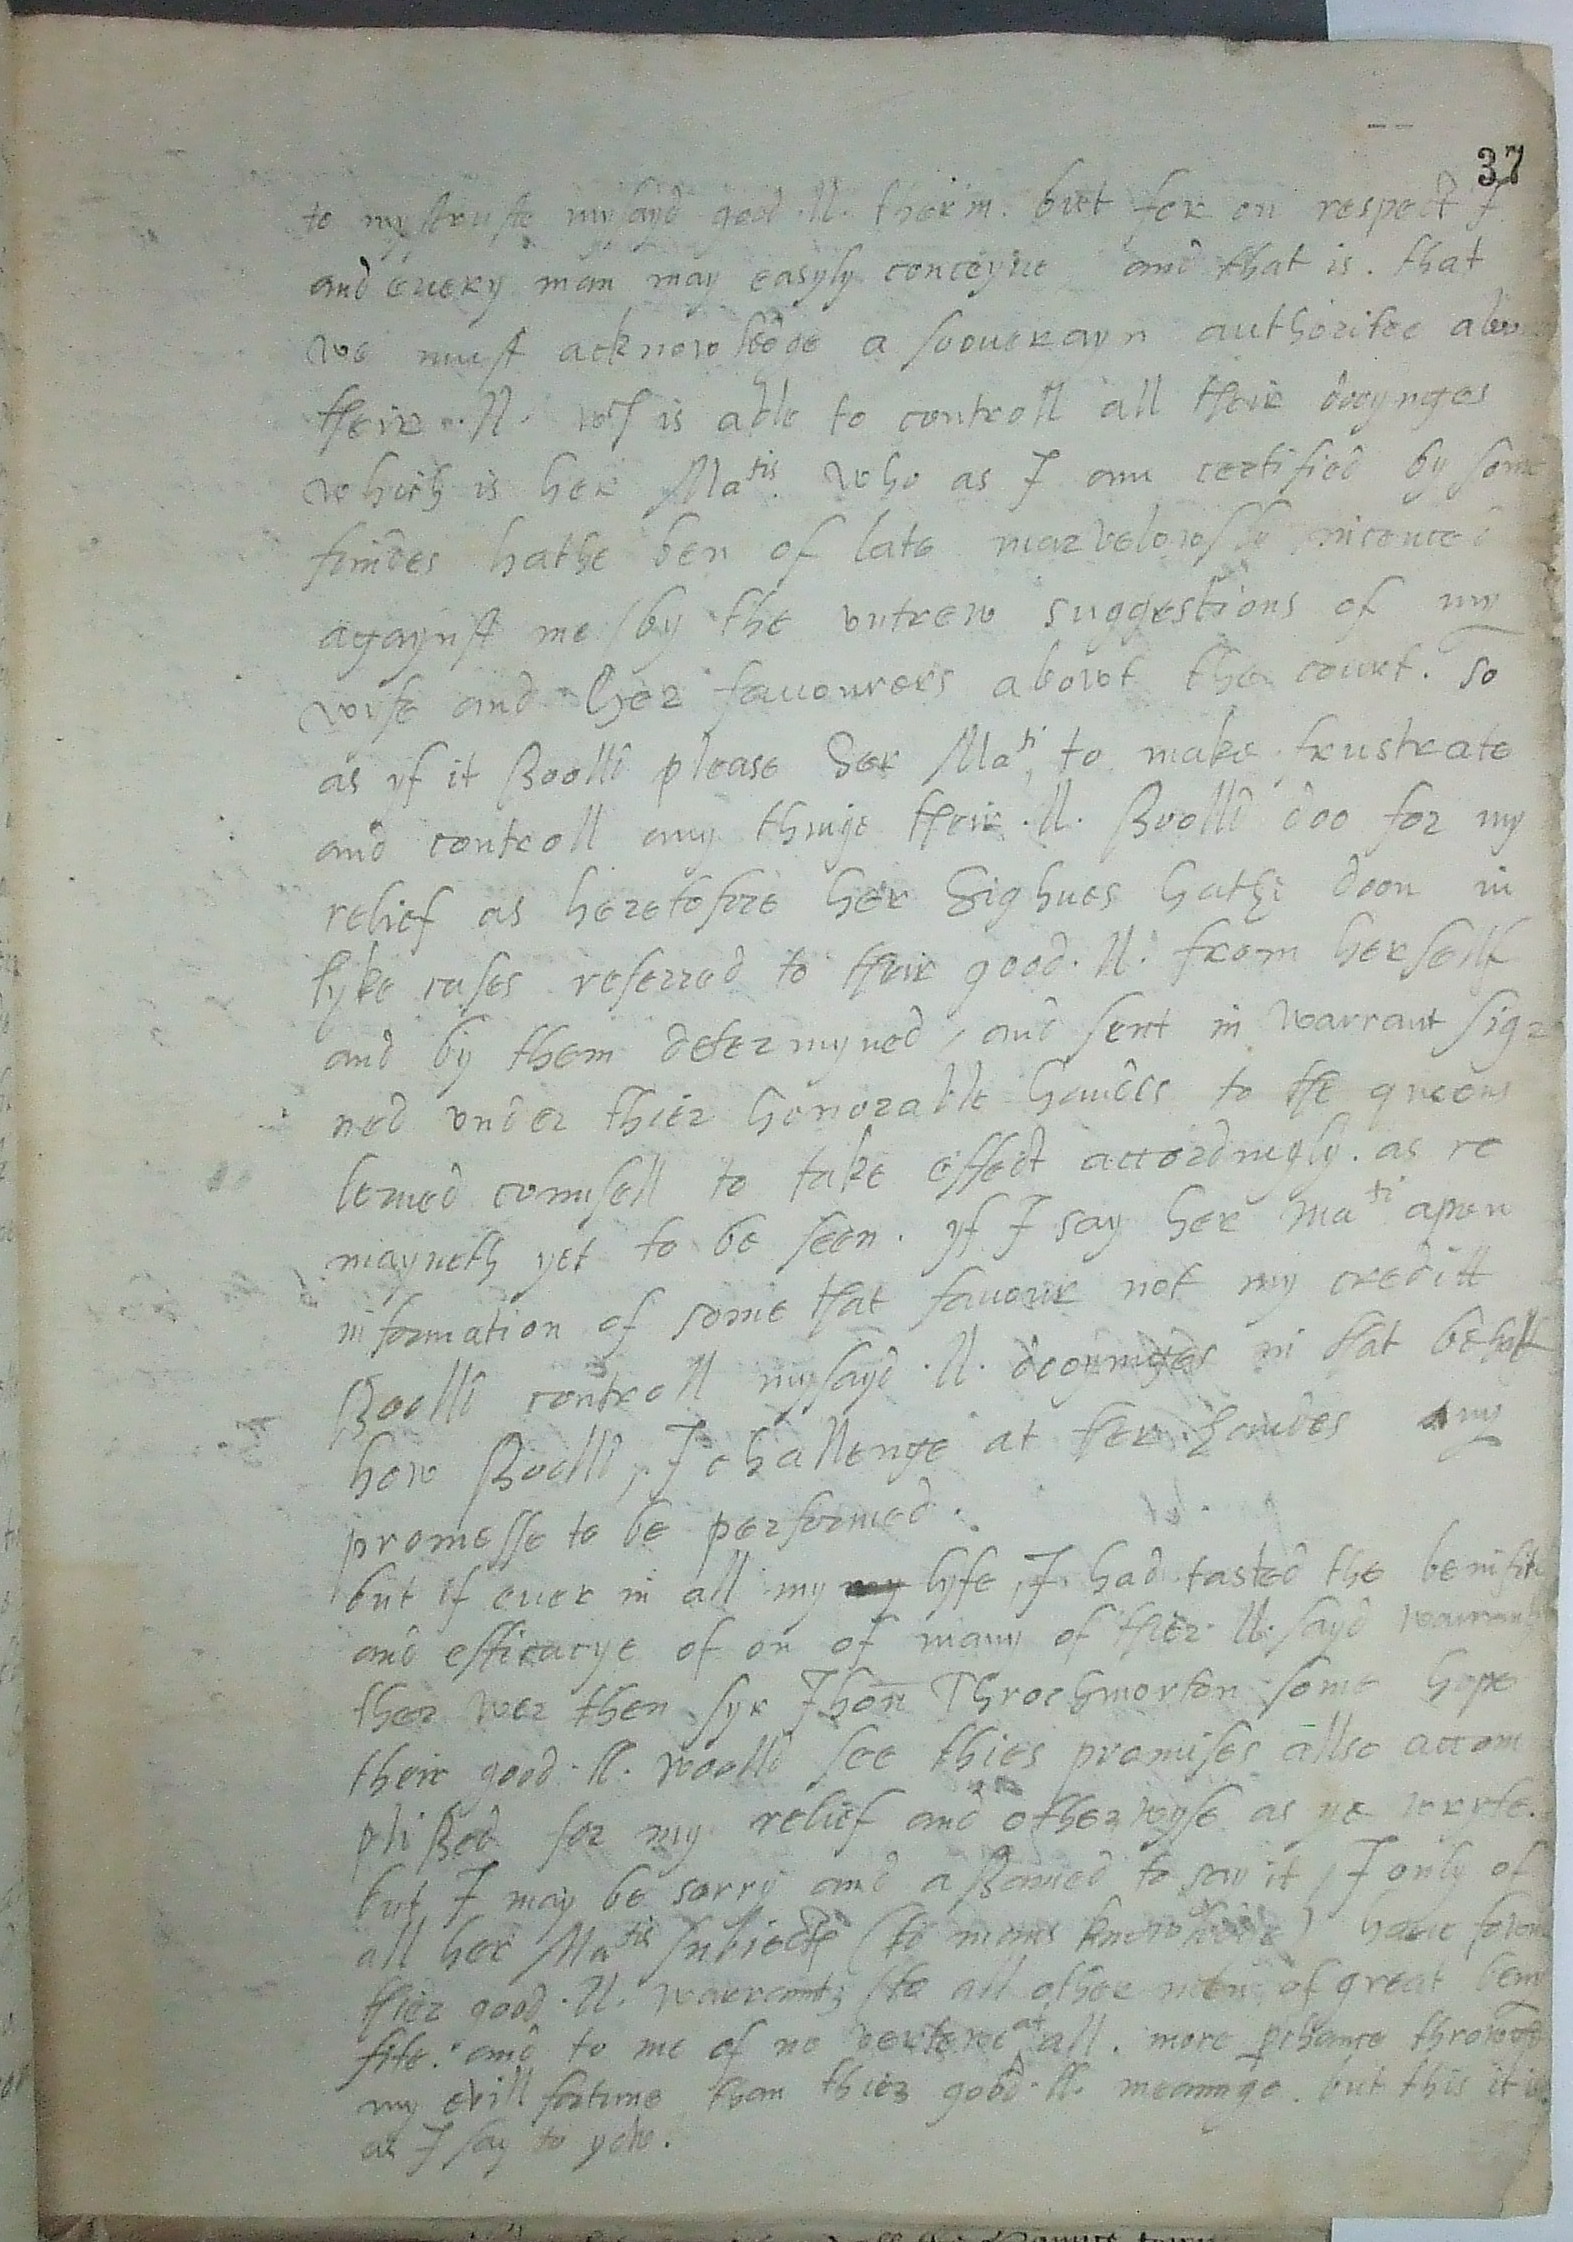 37
to mystruste my sayd good .ll. therin. but for on respect I
and euery man may easyly conceyue and that is. that
we must acknowledge a sooverayn authoritee abo
their .ll. wch is able to controll all their dooynges
which is her Matis. who as I am certified by some
frindes hathe ben of late marvelowsly incenced
agaynst me / by the vntrew suggestions of my
wife and her favourers abowt the court. so
as yf it shoolld please her Mati to make frustrate
and controll any thinge their .ll. shoolld doo for my
relief as heretofore her highnes hathe doon in
lyke cases referred to their good .ll. from herself
and by them determyned / and sent in warrant sig=
ned vnder thier honorable handes to the queens
lerned counsell to take effect accordingly. as re
mayneth yet to be seen. yf I say her Mati apon
information of some that favour not my creditt
shoolld controll my sayd .ll. dooynges in that behalf
how shoolld, I challenge at ther handes any
promesse to be performed.
but if euer in all my lyfe, I had tasted the benifite
and efficacye of on of many of thier .ll. sayd warrant
ther wer then syr Jhon Throchmorton some hope
their good .ll. woolld see thies promises allso accom
plished for my relief and otherwyse as ye wryte.
but I may be sorry and ashamed to say it, I only of
all her Matis subiectes (to mans knowledge) haue fown
thier good .ll. warrants (to all other men of great beni
fite. and to me of no vertewe at all. more perchance throwgh
my evill fortune than thier good .ll. meaninge. but this it is
as I say to yow.